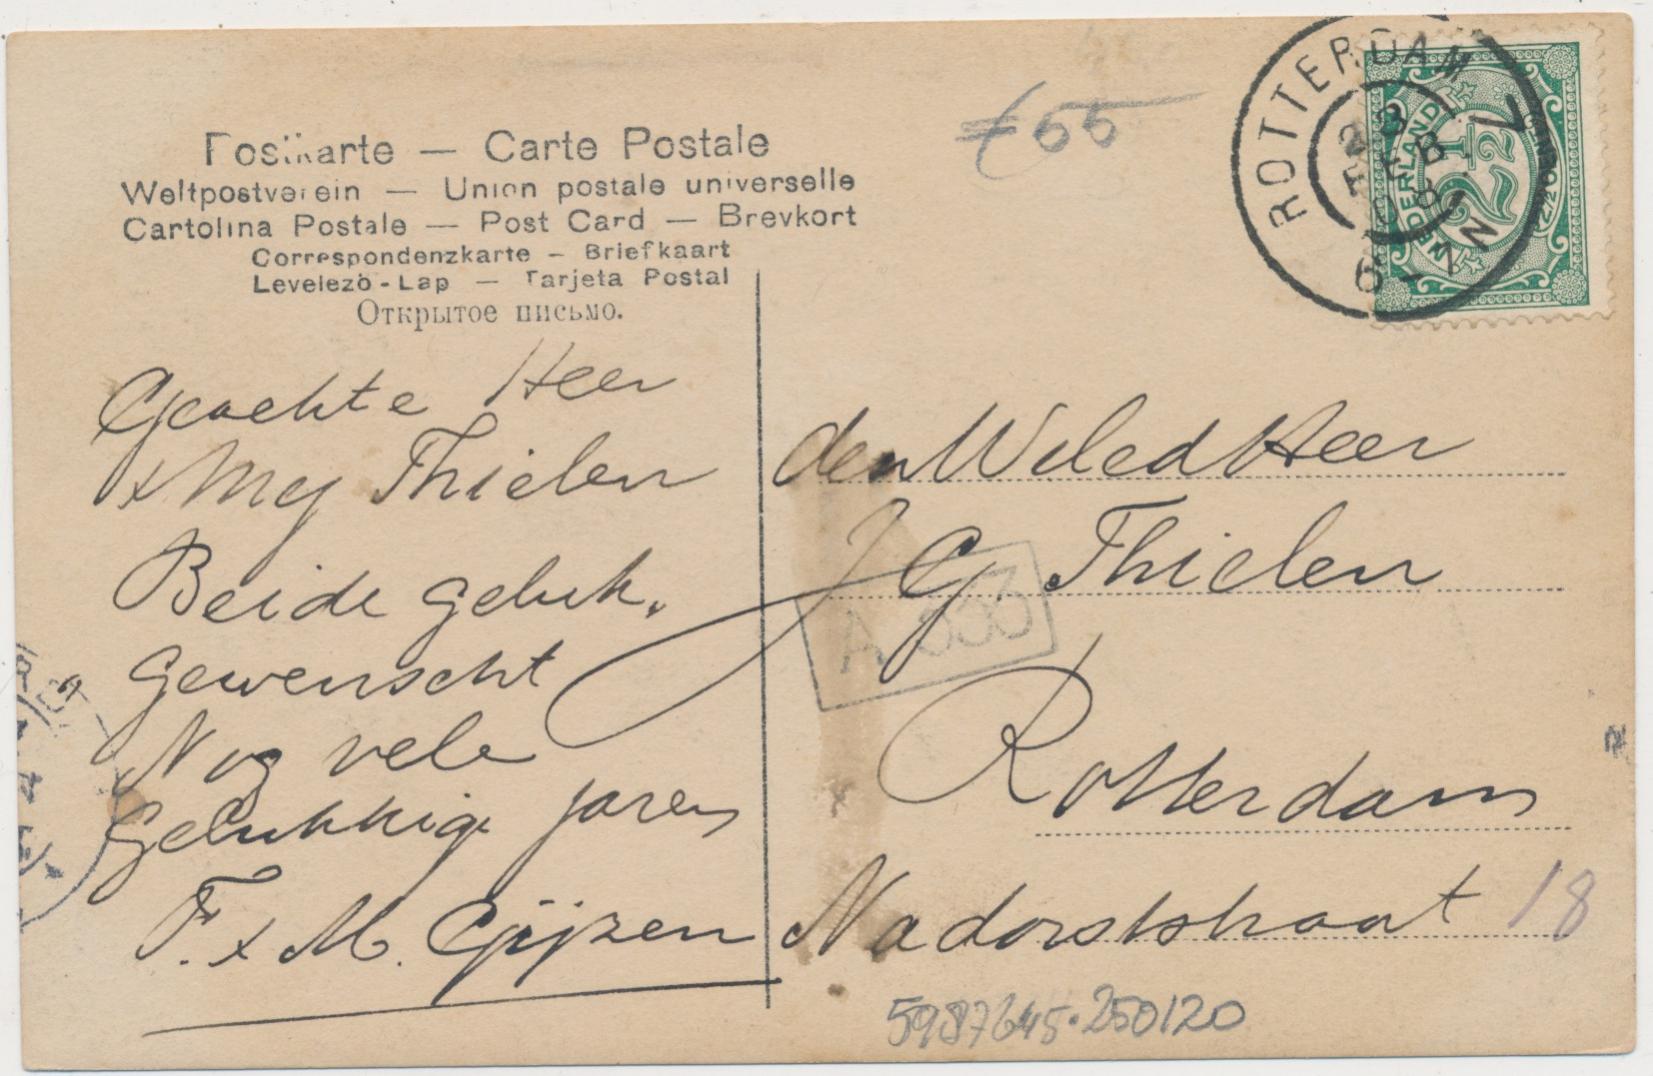 Postkarte — Carte Postale
Weltpostverein — Union postale universelle
Cartolina Postale — Post Card — Brevkort
Correspondenzkarte — Briefkaart
Levelező-Lap — Tarjeta Postal
Открытое письмо.
€ 65
ROTTERDAM
23 FEB 08
6-7N
NEDERLAND
2½
Geachte Heer
x Mej Thielen
Beide geluk.
gewenscht
Nog vele
gelukkige jaren
F. x M. Gijzen
den WelEd Heer
J G Thielen
Rotterdam
Nadorststraat 18
5987645.250120